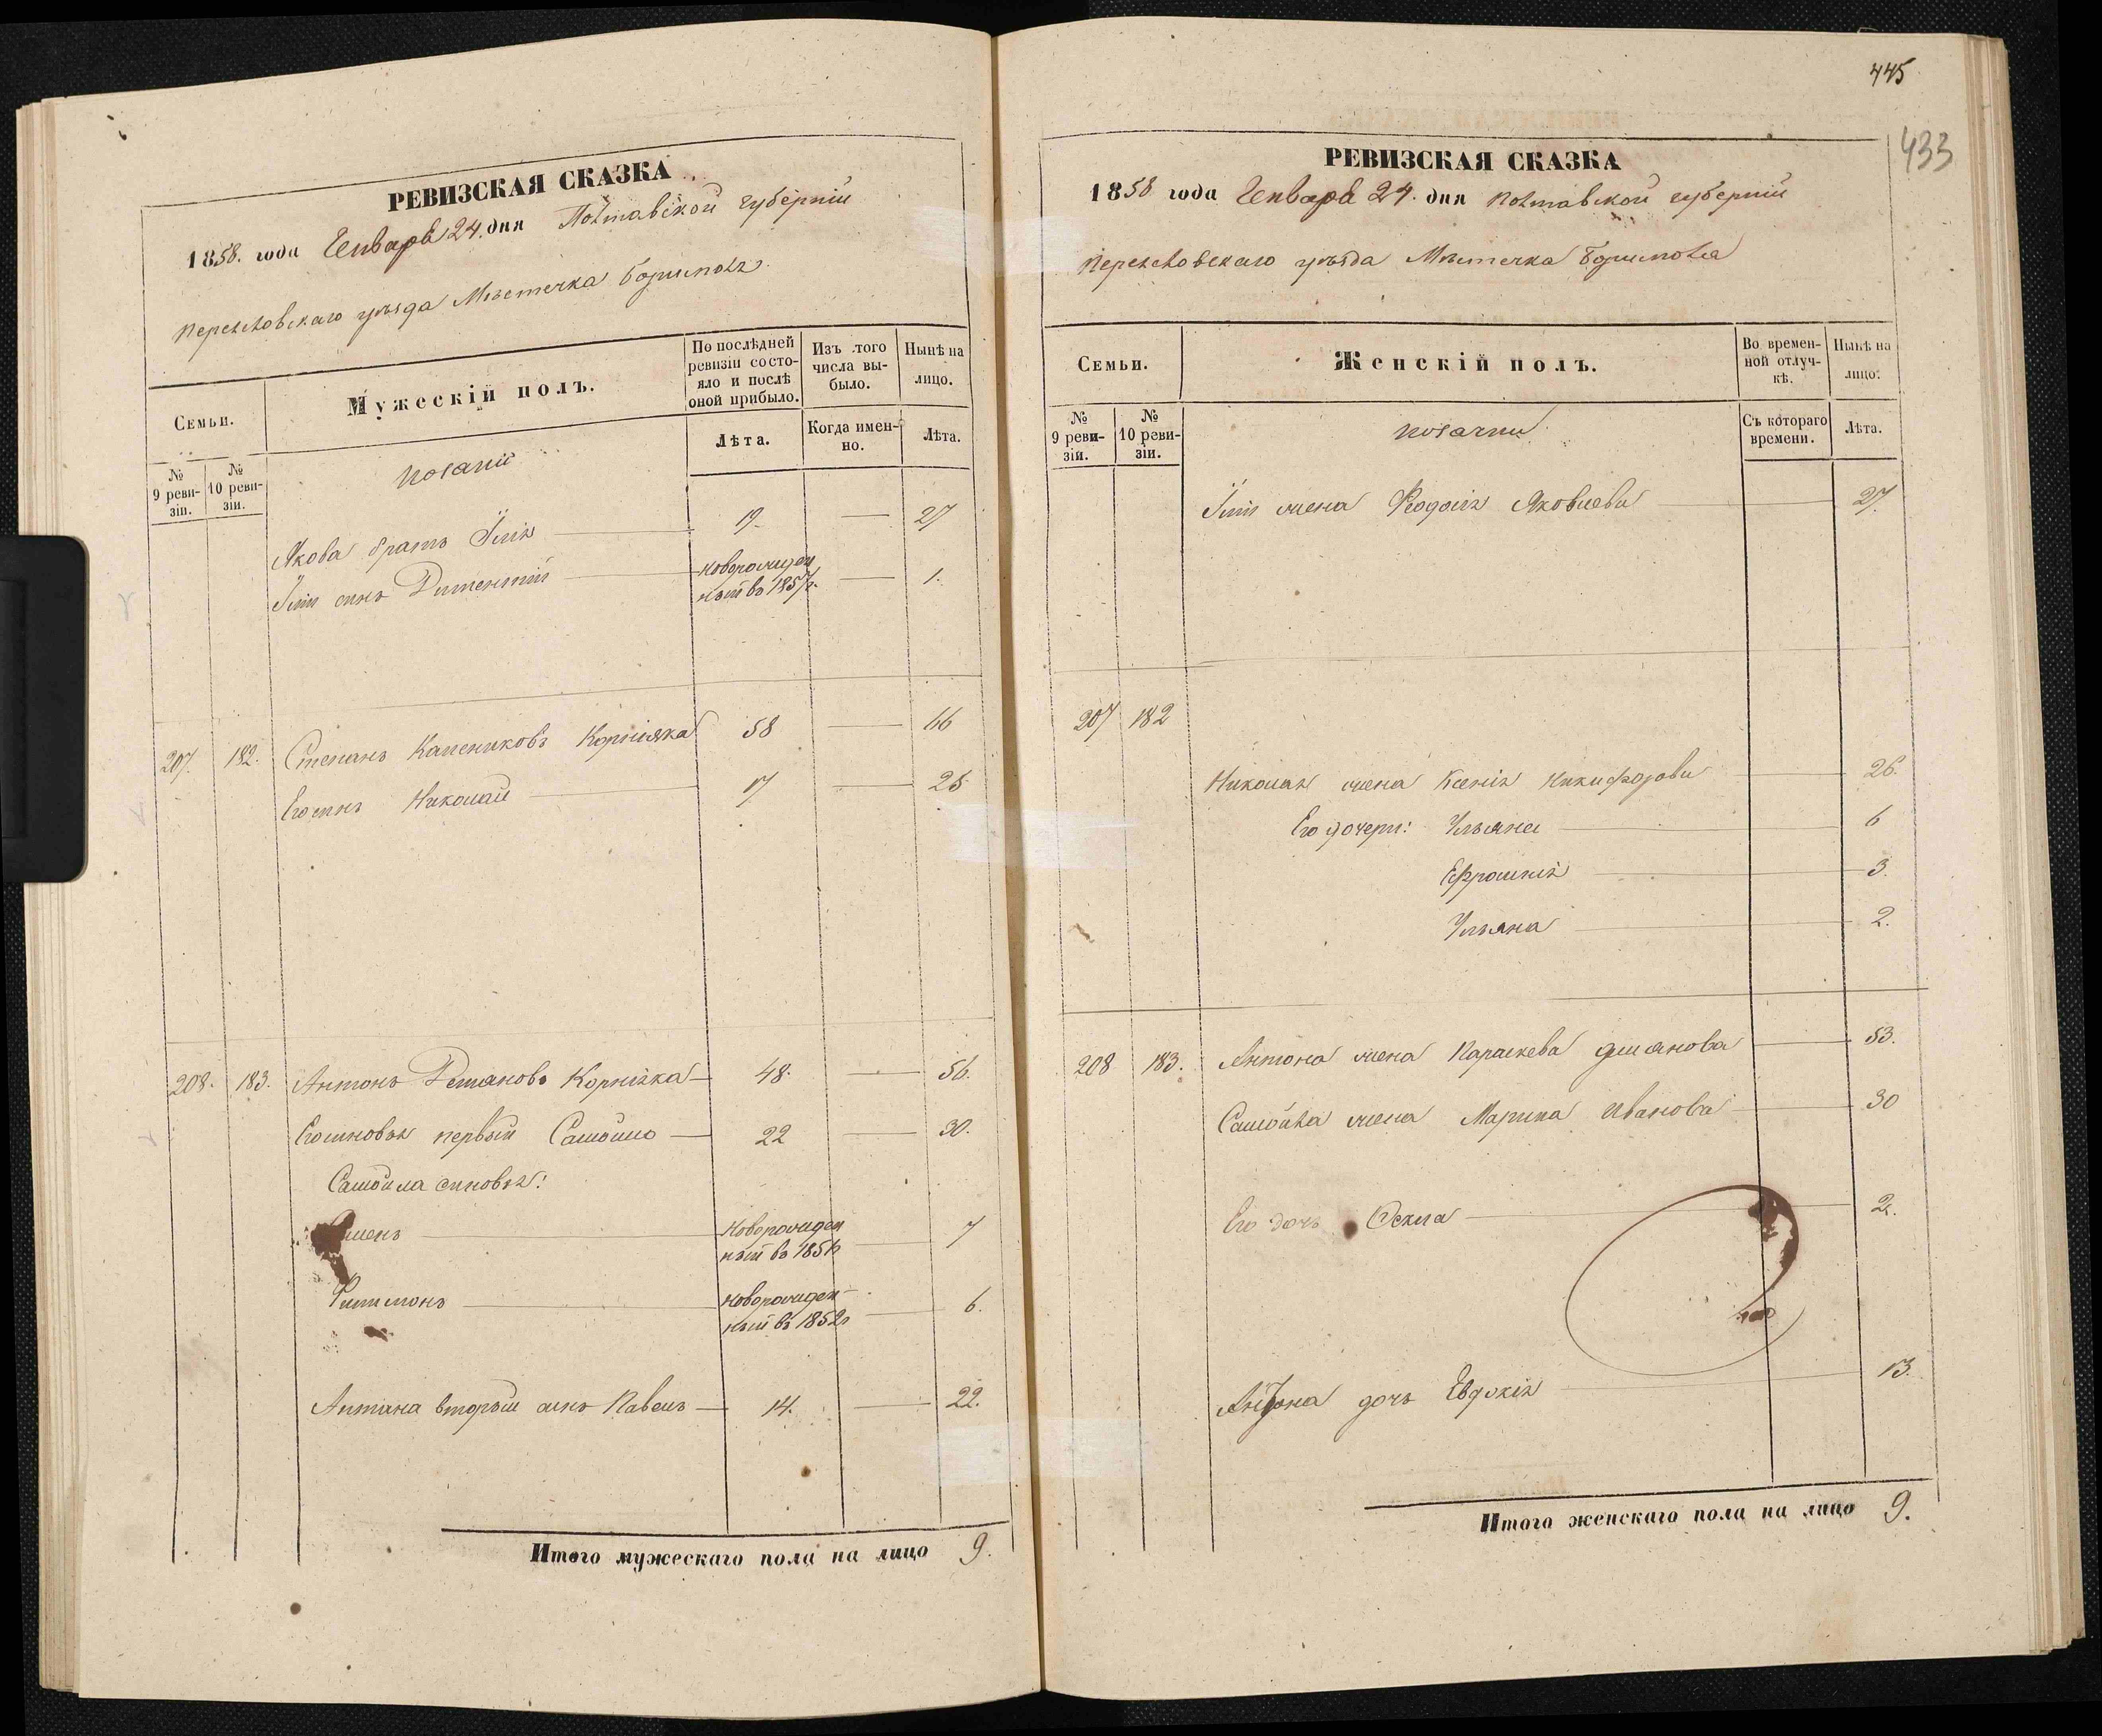 РЕВИЗСКАЯ СКАЗКА
1858. года Генваря 24. дня Полтавской губерніи
Переяславскаго уѣзда Мѣстечка Борисполя.
Семьи.
Мужескій полъ.
По послѣдней ревизіи состояло и послѣ оной прибыло.
Изъ того числа выбыло.
Нынѣ на лицо.
№ 9 ревизіи.
№ 10 ревизіи.
Козаки
Лѣта.
Когда именно.
Лѣта.
Якова братъ Илія 19. 27
Иліи сынъ новорожденный въ 1857г. 1.
207. 182. Степанъ Корніяка 58 66
Его сынъ Николай 17 25
208. 183. Антонъ Корніяка 48. 56.
Его сыновья первый Самойло 22 30.
Самойла сыновья:
новорожденный въ 1851г 7
Филимонъ новорожденный въ 1852г 6.
Антона вторый сынъ Павелъ 14. 22.
Итого мужескаго пола на лицо 9.
445
433
РЕВИЗСКАЯ СКАЗКА
1858 года Генваря 24. дня Полтавской губерніи
Переяславскаго уѣзда Мѣстечка Борисполя
Семьи.
Женскій полъ.
Во временной отлучкѣ.
Нынѣ на лицо.
№ 9 ревизіи.
№ 10 ревизіи.
Козачки
Съ котораго времени.
Лѣта.
Иліи жена Феодосія Яковлева 27.
207 182
Николая жена Ксенія Никифорова 26.
Его дочери: Ульяна 6
Ефросинія 3.
Ульяна 2.
208 183. Антона жена Параскева 53.
Самойла жена Марина Иванова 30
Его дочь Фекла 2.
Антона дочь Евдокія 13.
Итого женскаго пола на лицо 9.